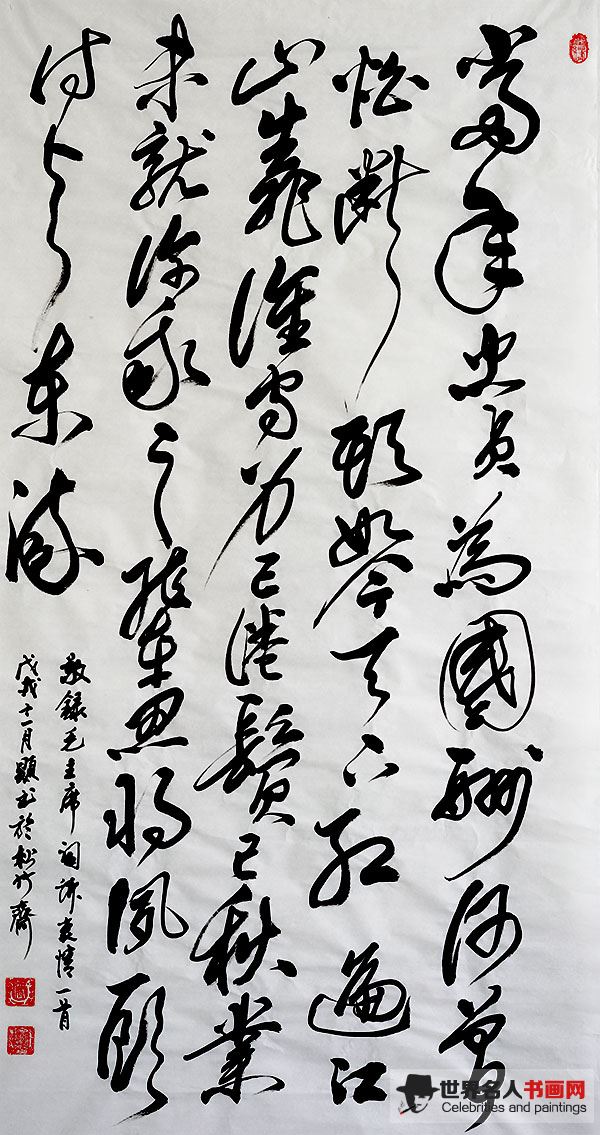 當年忠貞為國酬何曾
怕斷頭如今天下紅遍江
山靠誰守身已倦鬢已秋業
未就你我之輩忍將夙願
付與東流
敬錄毛主席詞訴衷情一首
戊戌十一月顯书於松竹齋
世界名人书画网
Celebrities and paintings